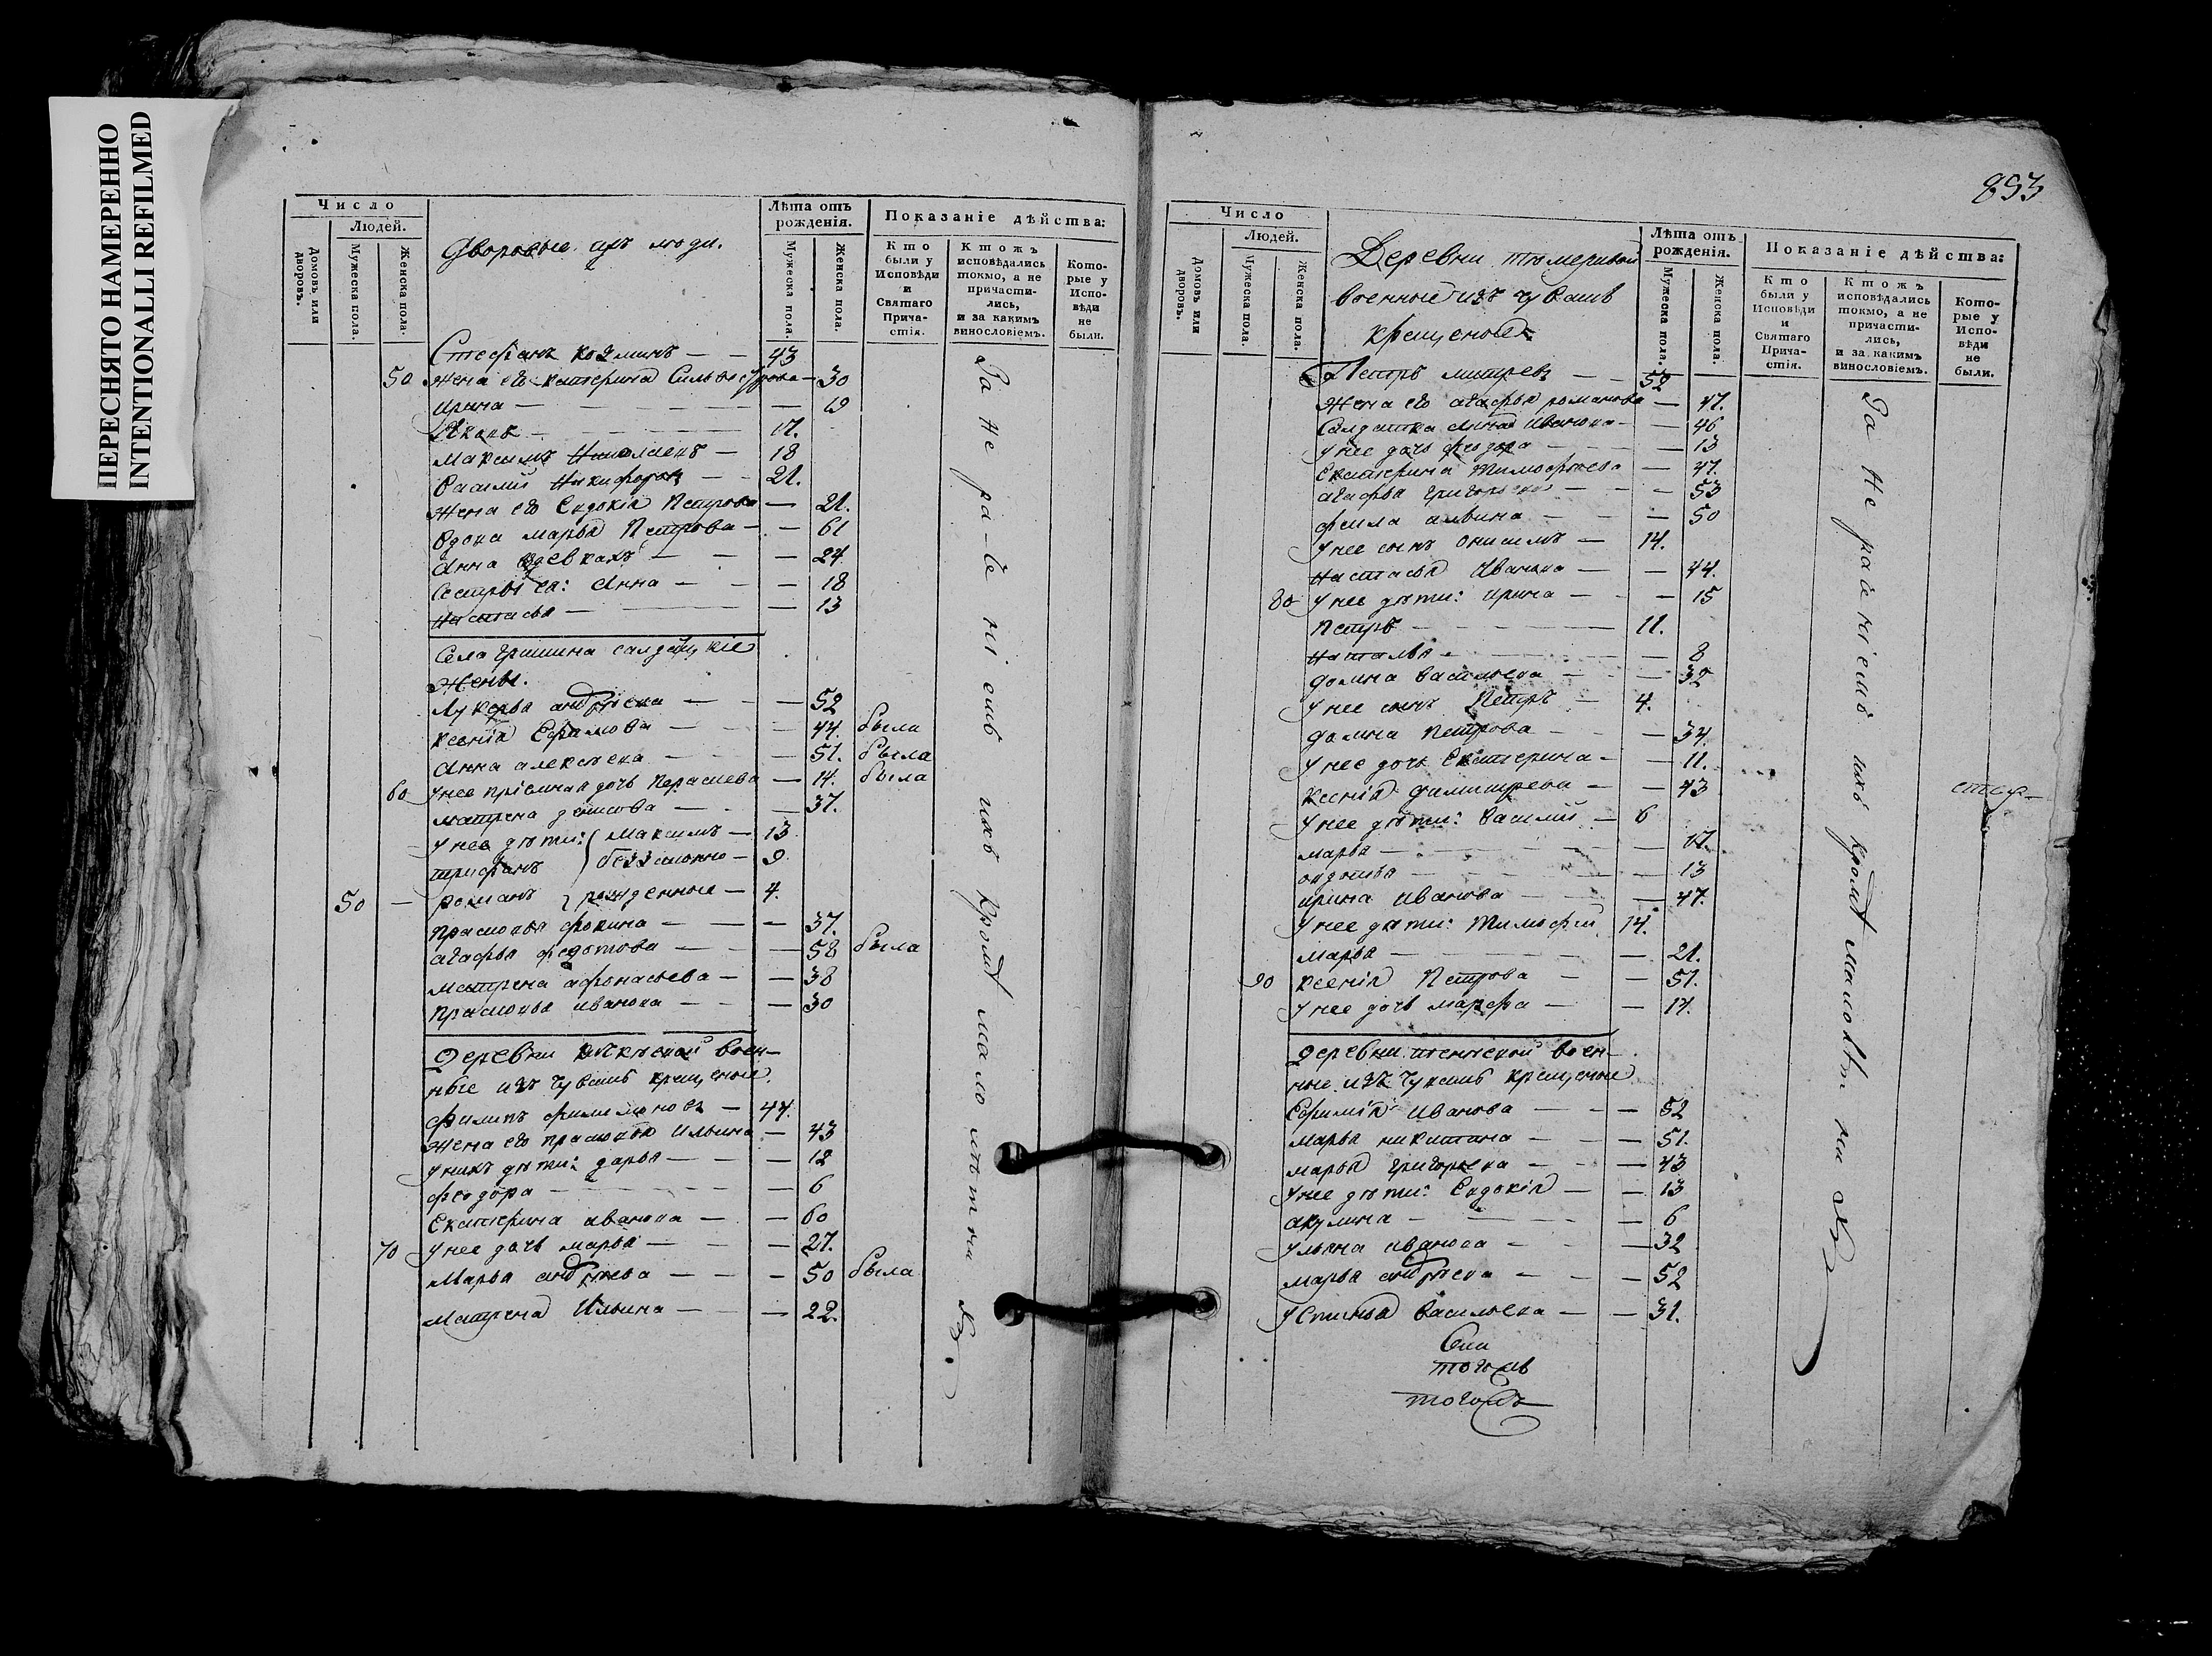 ПЕРЕСНЯТО НАМЕРЕННО
INTENTIONALLI REFILMED
Число
Людей.
Домовъ или дворовъ.
Мужеска пола.
Женска пола.
Дворовые ихъ люди.
Лѣта отъ рожденія.
Мужеска пола.
Женска пола.
Показаніе дѣйства:
Кто были у Исповѣди и Святаго Прича-стія.
Ктожъ исповѣдались токмо, а не причасти-лись, и за какимъ винословіемъ.
Кото-рые у Испо-вѣди не были.
Стефанъ Козминъ — — 43
50 Жена его Катерина Сильвестрова — 30
Ирина — — 19
Яковъ — 17.
Максимъ Николаевъ — 18
Василий Никифоровъ — — 21.
Жена его Евдокія Петрова — 21.
Вдова Марья Петрова — — 61
Анна — — 24
Сестры ея: Анна — — 18
Настасья — — 13
Села Гришина салдатскіе
Жены.
Лукерья Андреева — — 52
Ксенія Ефимова — — 44. была
Анна Алексеева — 51. была
60 У нее пріемная дочь — 14. была
Матрена Денисова — — 37.
У нее дѣти: Максимъ — 13
Трифанъ беззаконно — 9
50 — Романъ рожденные — 4.
Прасковья Фокина — — 37.
Агафья Федотова — — 58 была
Матрена Афонасьева — — 38
Прасковья Иванова — — 30
Деревни воен-
ные изъ Чувашъ крещеные
Филипъ Филимоновъ — 47.
Жена его Прасковья Ильина — 43
У нихъ дѣти: Дарья — — 12
Феодора — — 6
Екатерина Иванова — — 60
70 У нее дочь Марья — — 27.
Марья Андреева — — 50 была
Матрена Ильина — — 22.
За не ра-че ні емъ ихъ кромѣ мало лѣтни хъ
853
Число
Людей.
Домовъ или дворовъ.
Мужеска пола.
Женска пола.
Деревни
военные изъ Чувашъ
крещеные
Лѣта отъ рожденія.
Мужеска пола.
Женска пола.
Показаніе дѣйства:
Кто были у Исповѣди и Святаго Прича-стія.
Ктожъ исповѣдались токмо, а не причасти-лись, и за какимъ винословіемъ.
Кото-рые у Испо-вѣди не были.
Петръ — — 52
Жена его Агафья Романова — 47.
Салдатка Анна Иванова — — 46
У нее дочь Феодора — 13
Екатерина Тимофеева — 47.
Агафья Григорьева — — 53
— — 50
У нее сынъ Онисимъ — 14.
Настасья Иванова — — 44.
80 У нее дѣти: Ирина — — 15
Петръ — 11.
Наталья — — 8
Васильева — — 32
У нее сынъ Петръ — 4.
Петрова — — 34.
У нее дочь Екатерина — — 11.
Ксенія Димитрева — — 43
У нее дѣти: Василий — 6
Марья — — 17.
— — 13
Ирина Иванова — — 47.
У нее дѣти: Тимофей 14.
Марья — — 21.
90 Ксенія Петрова — 51.
У нее дочь Марфа — — 17.
Деревни воен-
ные изъ Чувашъ крещеные
Ефимія Иванова — — 52
Марья Никитина — — 51.
Марья Григорьева — — 43
У нее дѣти: Евдокія — — 13
Акулина — — 6
Ульяна Иванова — — 32
Марья Андреева — — 52
Устинья Васильева — — 31.
За не раче ніемъ ихъ кромѣ малолѣт ни хъ